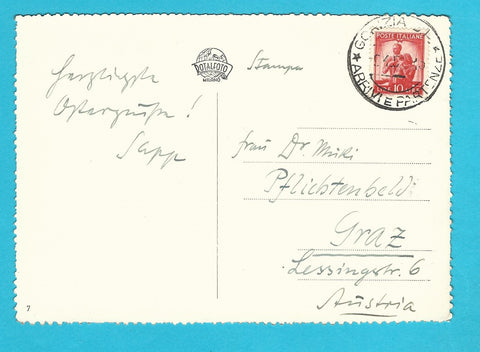 Herzlichste
Ostergrüße!
Sapp
ROTALFOTO
MILANO
Stampa
GORIZIA
ARRIVI E PARTENZE
POSTE ITALIANE
10
Frau Dr. Muki
Pflichtenheld
Graz
Lessingstr. 6
Austria
7